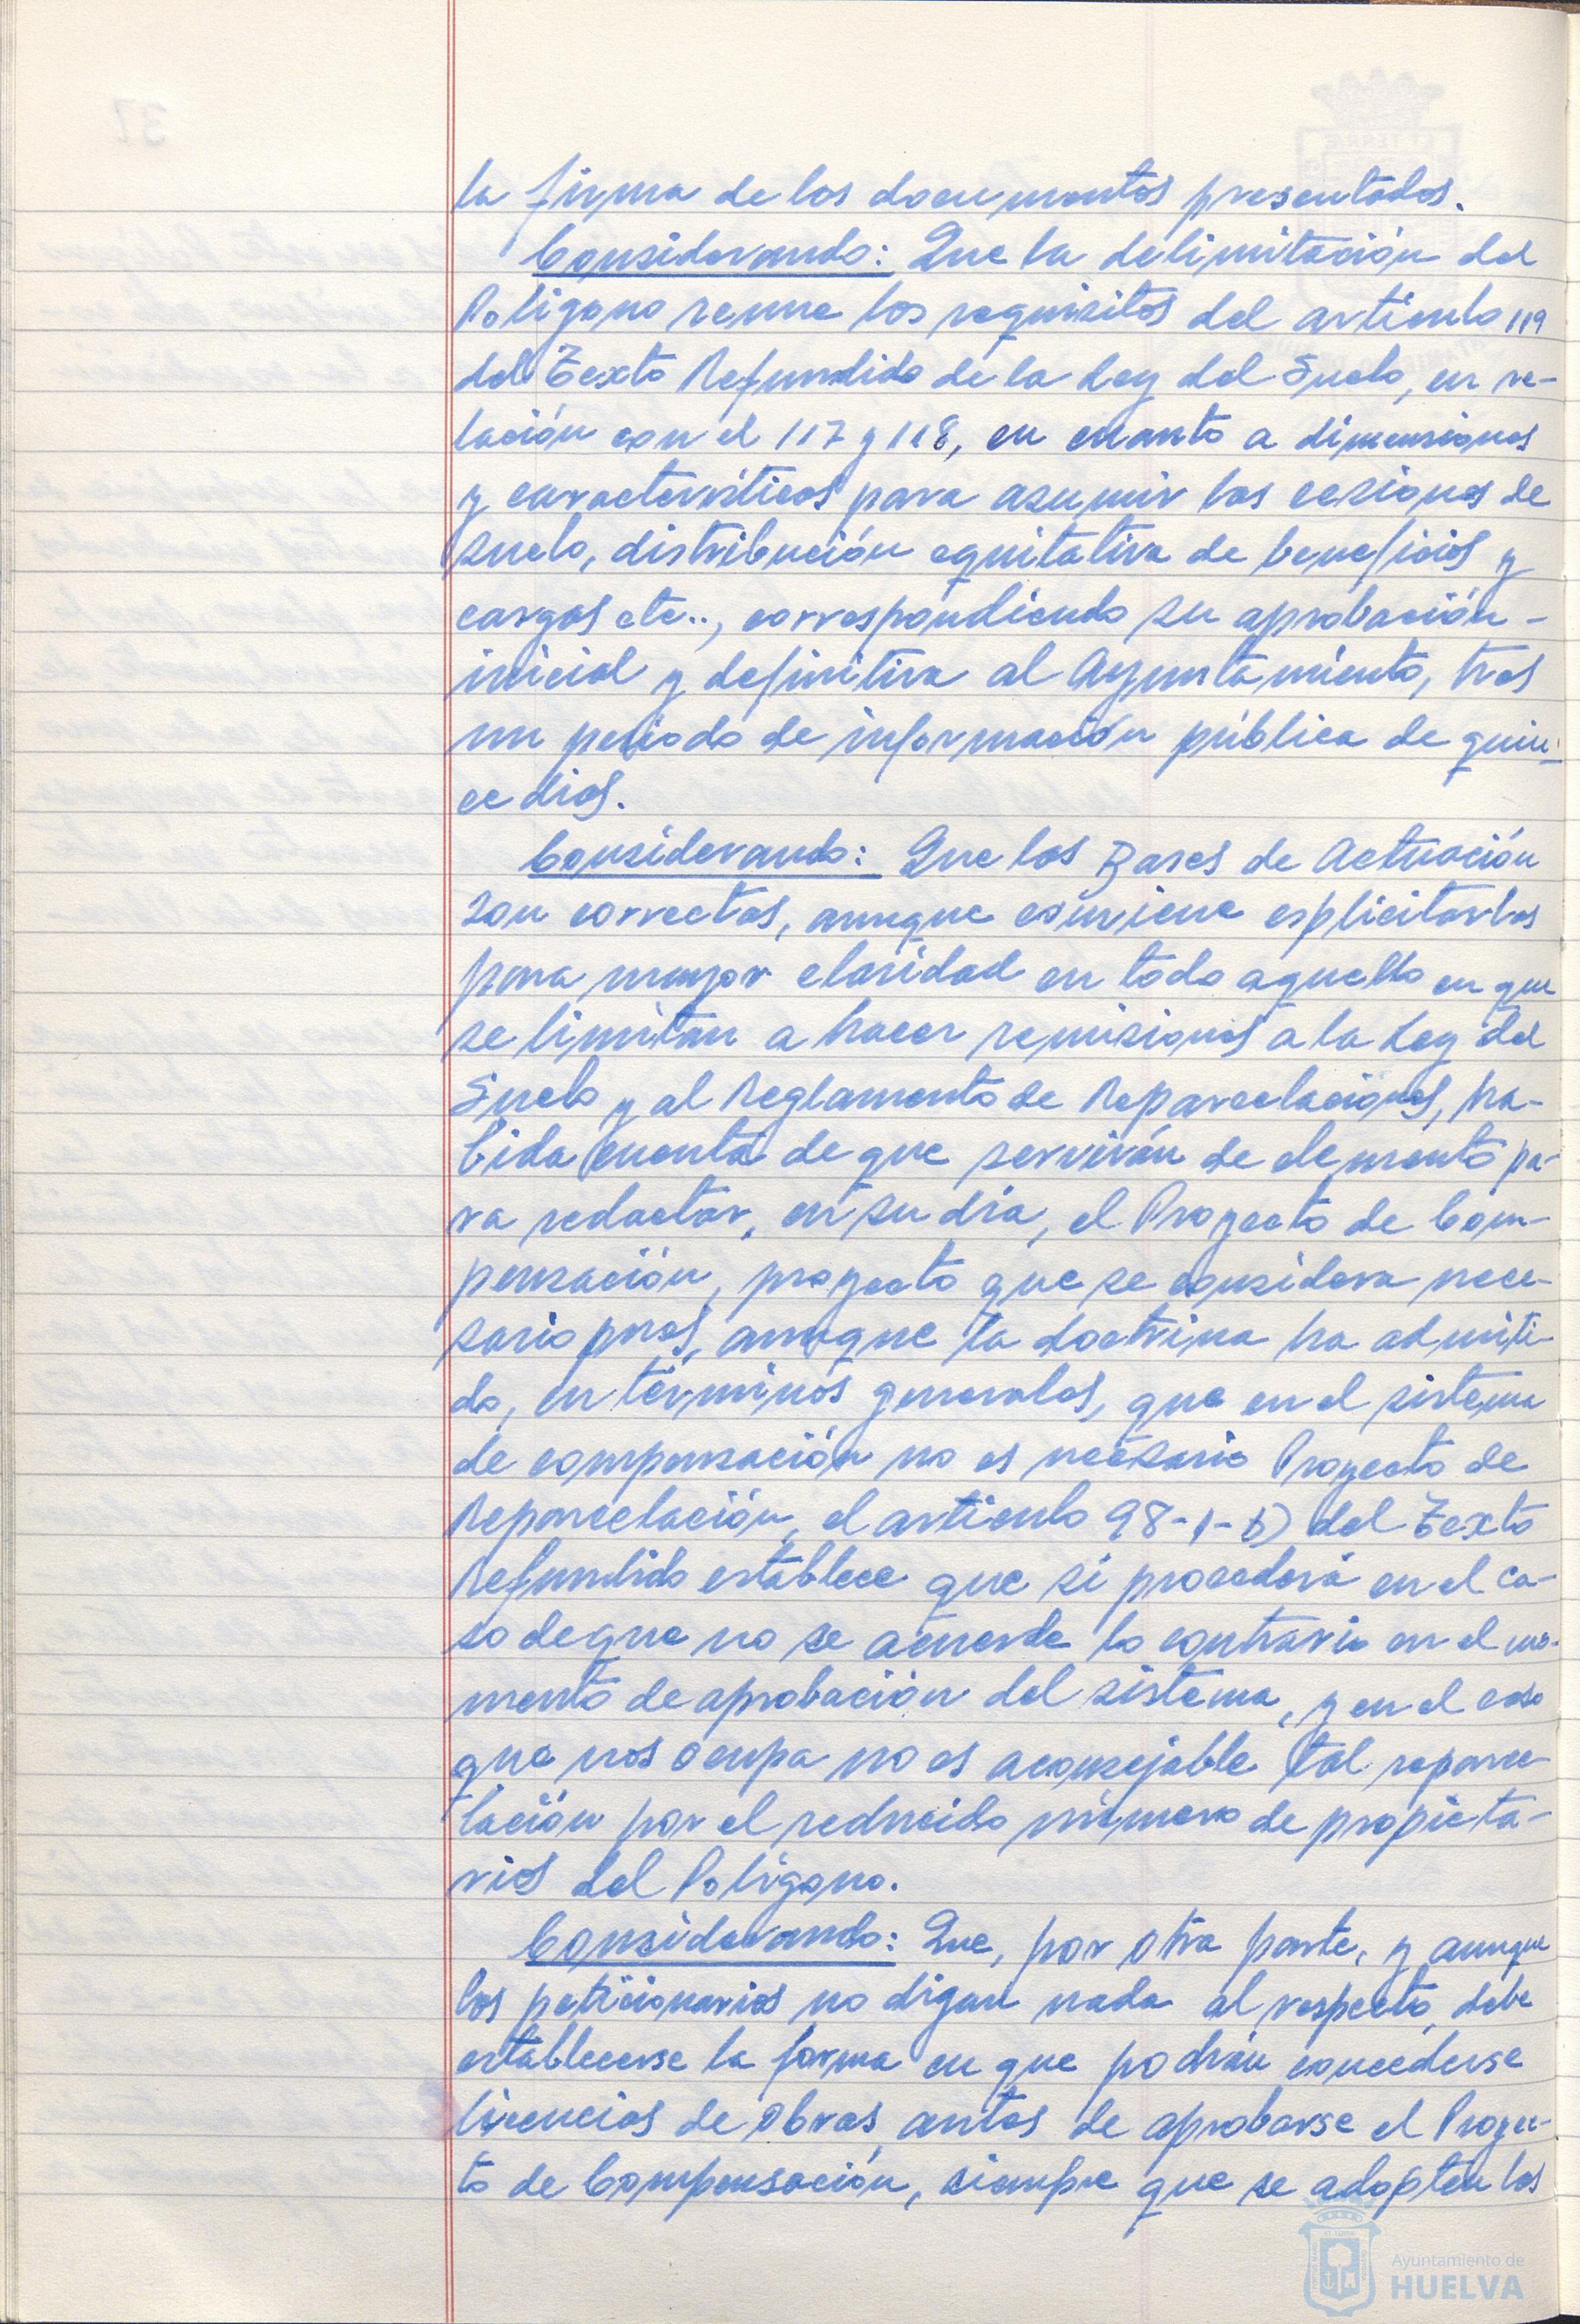 la firma de los documentos presentados.
Considerando: Que la delimitación del
Polígono reune los requisitos del artículo 119
del Texto Refundido de la Ley del Suelo, en re-
lación con el 117 y 118, en cuanto a dimensiones
y características para asumir las cesiones de
suelo, distribución equitativa de beneficios y
cargas etc.., correspondiendo su aprobación -
inicial y definitiva al Ayuntamiento, tras
un período de información pública de quin-
ce días.
Considerando: Que las Bases de Actuación
son correctas, aunque conviene esplicitarlas
para mayor claridad en todo aquello en que
se limitan a hacer remisiones a la Ley del
Suelo y al Reglamento de Reparcelaciones, ha-
bida cuenta de que servirán de elemento pa-
ra redactar, en su día, el Proyecto de Com-
pensación, proyecto que se considera nece-
sario pues, aunque la doctrina ha admiti-
do, en términos generales, que en el sistema
de compensación no es necesario Proyecto de
Reparcelación, el artículo 98-1-b) del Texto
Refundido establece que sí procederá en el ca-
so de que no se acuerde lo contrario en el mo-
mento de aprobación del sistema, y en el caso
que nos ocupa no es aconsejable tal reparce-
lación por el reducido número de propieta-
rios del Polígono.
Considerando: Que, por otra parte, y aunque
los peticionarios no digan nada al respecto, debe
establecerse la forma en que podrán concederse
licencias de obras, antes de aprobarse el Proyec-
to de Compensación, siempre que se adopten las
Ayuntamiento de
HUELVA